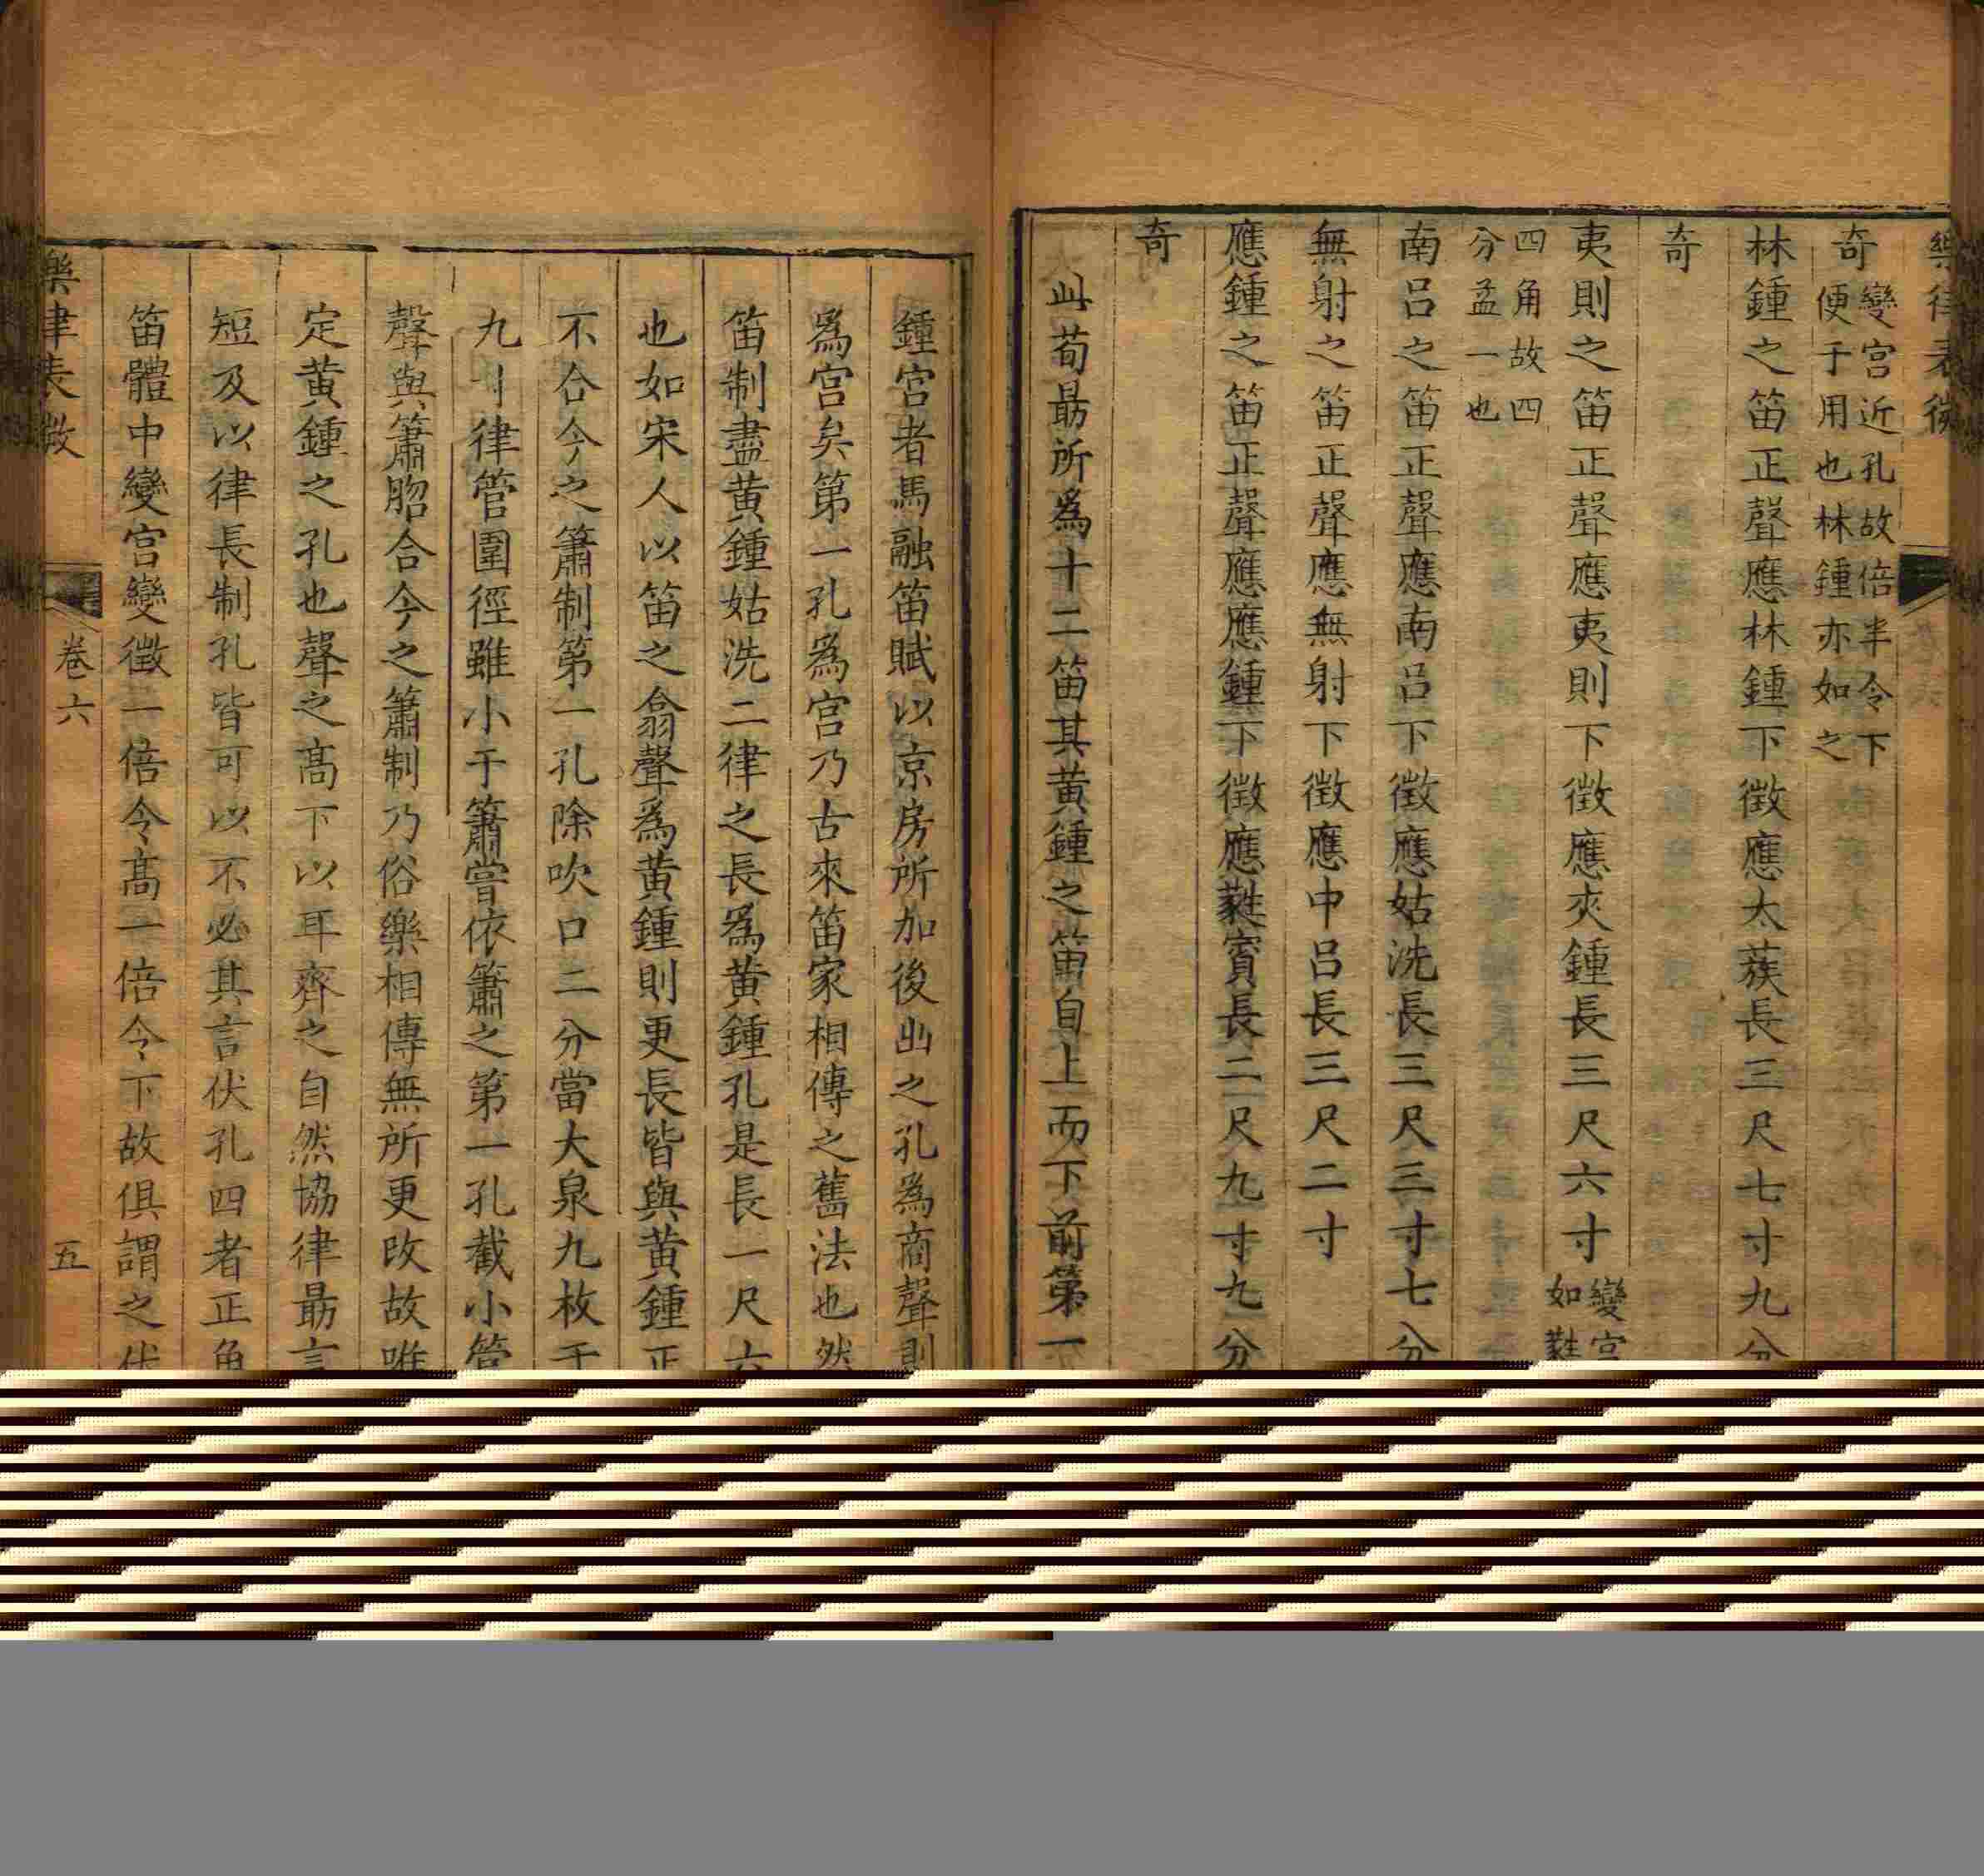 樂律表微
奇變宮近孔故倍半令下
便于用也林鍾亦如之
林鍾之笛正聲應林鍾下徵應太蔟長三尺七寸九分
奇
夷則之笛正聲應夷則下徵應夾鍾長三尺六寸變宮
如蕤
四角故四
分益一也
南呂之笛正聲應南呂下徵應姑洗長三尺三寸七分
無射之笛正聲應無射下徵應中呂長三尺二寸
應鍾之笛正聲應應鍾下徵應蕤賓長二尺九寸九分
奇
此荀勗所為十二笛其黃鍾之笛自上而下前第一
鍾宮者馬融笛賦以京房所加後出之孔為商聲則
為宮矣第一孔為宮乃古來笛家相傳之舊法也然
笛制盡黃鍾姑洗二律之長為黃鍾孔是長一尺六
也如宋人以笛之翕聲為黃鍾則更長皆與黃鍾正
不合今之簫制第一孔除吹口二分當大泉九枚于
九寸律管圍徑雖小于簫嘗依簫之第一孔截小管
聲與簫脗合今之簫制乃俗樂相傳無所更改故唯
定黃鍾之孔也聲之高下以耳齊之自然協律勗言
短及以律長制孔皆可以不必其言伏孔四者正角
笛體中變宮變徵一倍令高一倍令下故俱謂之伏
樂律表微
卷六
五